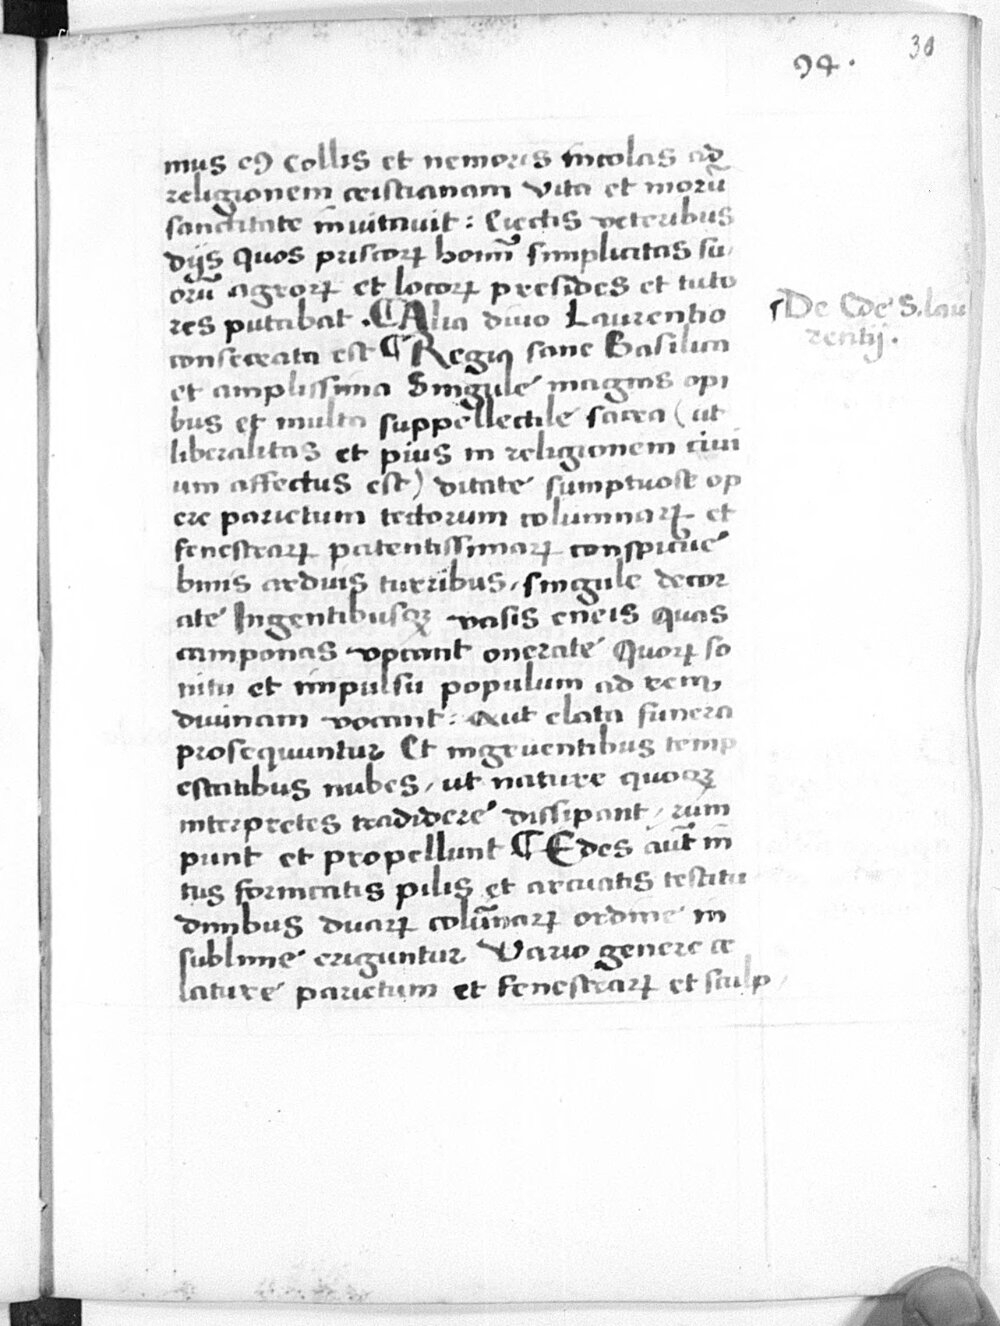 94.
30
mus eꝯ collis et nemoris incolas ad
religionem cristianam vita et morū
sanctitate inuitauit : Eiectis veteribus
dijs quos priscoꝝ homīm simplicitas su
orū agroꝝ et locoꝝ presides et tuto
res putabat . ¶ Alia diuo Laurentio
consecrata est ¶ Regia sane Basilica
et amplissima Singule magnis opi
bus et multa suppellectile sacra ( ut
liberalitas et pius in religionem ciui
um affectus est ) ditate sumptuose op
ere parietum tectorum columnaꝝ et
fenestraꝝ patentissimaꝝ conspicue
binis arduis turribus, singule decor
ate Ingentibusqꝫ vasis eneis quas
camponas vocant onerate Quoꝝ so
nitu et impulsu populum ad rem,
diuinam vocant : Aut elata funera
prosequuntur Et ingruentibus temp
estatibus nubes, ut nature quoqꝫ
interpretes tradidere dissipant, rum
punt et propellunt ¶ Edes aūt in
tus fornicatis pilis et arcuatis testitu
dinibus duaꝝ colūnaꝝ ordine in
sublime eriguntur Vario genere ce
lature parietum et fenestraꝝ et sculp
De Ede S. lau
rentij.